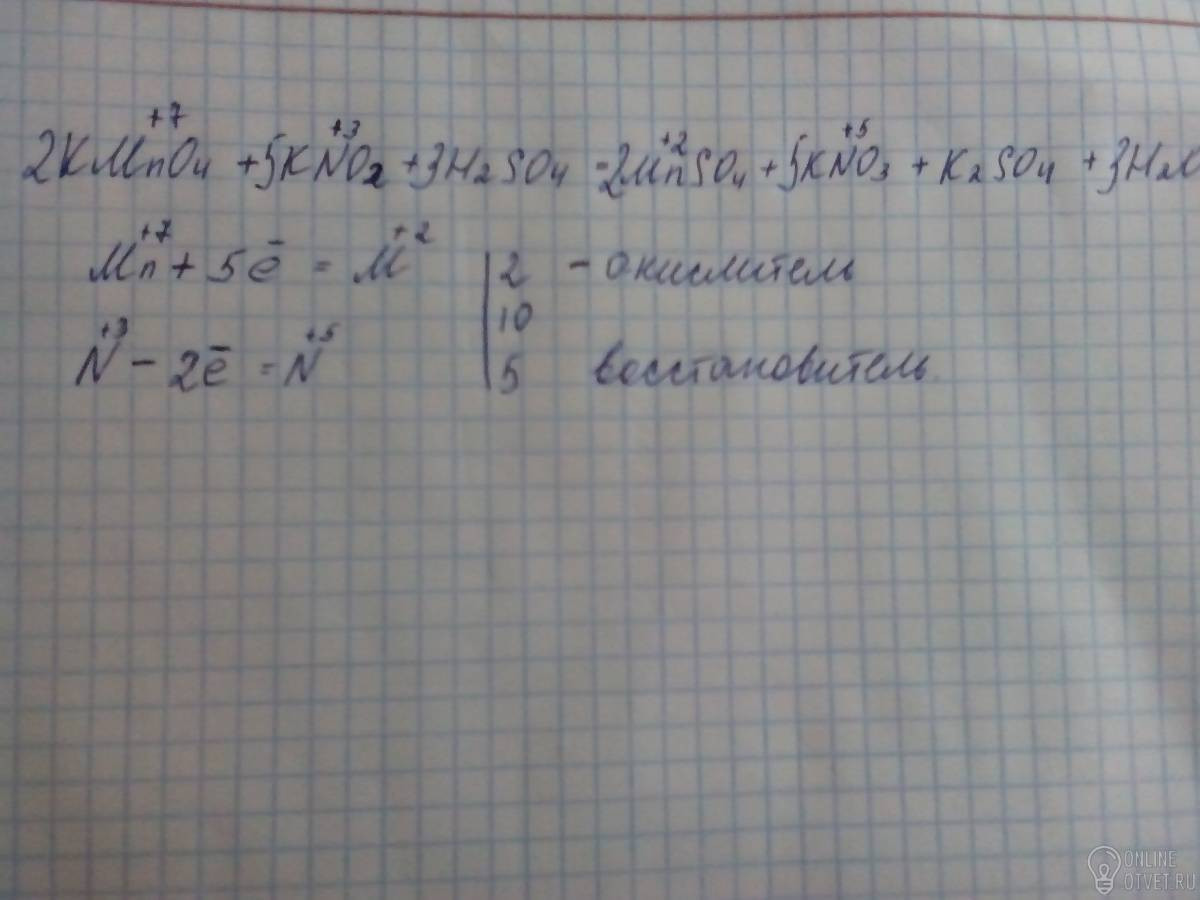 +7 +3 +2 +5
2KMnO₄ + 5KNO₂ + 3H₂SO₄ = 2MnSO₄ + 5KNO₃ + K₂SO₄ + 3H₂O
+7 +2
Mn + 5ē = M | 2 - окислитель
10
+3 +5
N - 2ē = N | 5 восстановитель
ONLINE
OTVET.RU